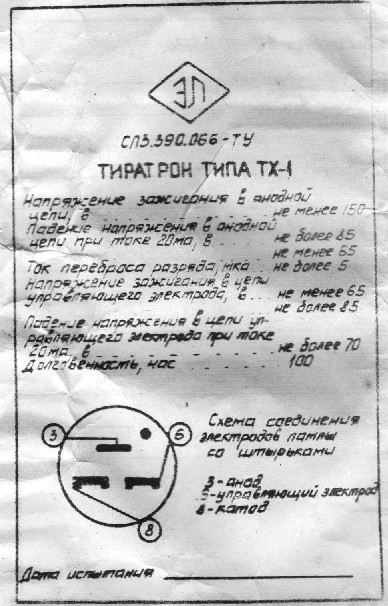 ЭЛ
СЛ3.390.066-ТУ
ТИРАТРОН ТИПА ТХ-1
Напряжение зажигания в анодной
цепи, в . . . . . . . не менее 150
Падение напряжения в анодной
цепи при токе 20ма, в . . не более 85
не менее 65
Ток переброса разряда, мка . . не более 5
Напряжение зажигания в цепи
управляющего электрода, в . . . не менее 65
не более 85
Падение напряжения в цепи уп-
равляющего электрода при токе
20ма, в . . . . . . . не более 70
Долговечность, час . . . . . 100
Схема соединения
электродов лампы
со штырьками
3
6
8
3-анод
5-управляющий электрод
8-катод
Дата испытания